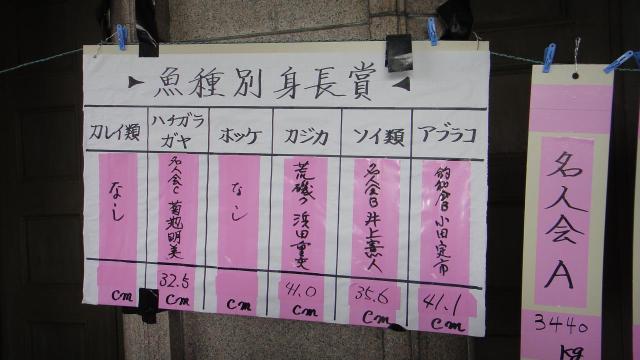 魚種別身長賞
カレイ類
ハチガラ
ガヤ
ホッケ
カジカ
ソイ類
アブラコ
なし
名人会C 菊地明美
なし
荒磯 浜田
名人会B 井上憲人
小田定市
cm
32.5
cm
cm
41.0
cm
35.6
cm
41.1
cm
名人会A
3440